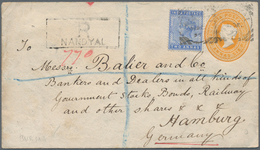 R
NANDYAL
770
To
Messrs Balier and Co.
Bankers and Dealers in all kinds of
Government Stocks, Bonds, Railway
and other shares & & &
Hamburg
Germany